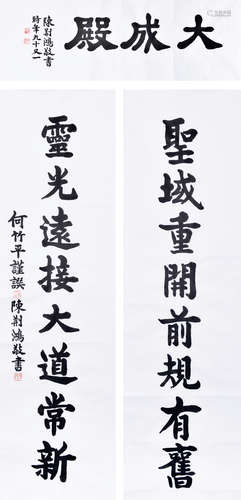 大成殿
陳荊鴻敬書
時年九十又一
聖域重開前規有舊
靈光遠接大道常新
何竹平謹譔 陳荊鴻敬書